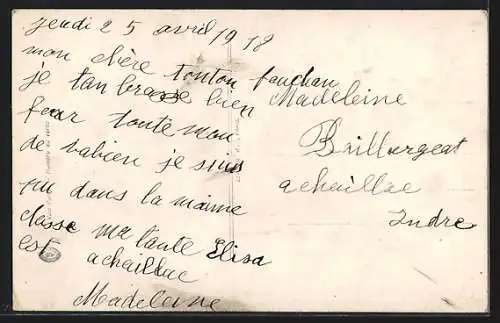 jeudi 25 avril 1918
mon chère tonton fanchan
je tan brasse bien
four toute mon
de vabien je suis
ru dans la maime
classe ma tante Elisa
est achaillac
Madeleine
Madeleine
Baillargeat
achaillac
Indre